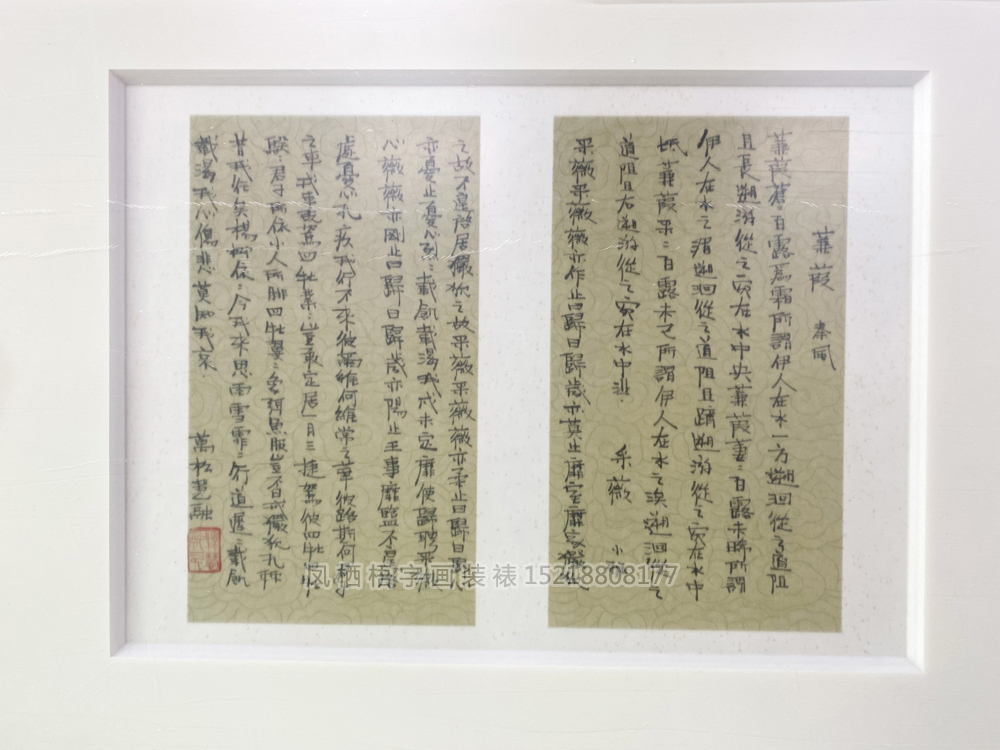 蒹葭 秦風
蒹葭蒼〻白露爲霜所謂伊人在水一方遡洄從之道阻
且長遡游從之宛在水中央蒹葭萋〻白露未晞所謂
伊人在水之湄遡洄從之道阻且躋遡游從之宛在水中
坻蒹葭采〻白露未已所謂伊人在水之涘遡洄從之
道阻且右遡游從之宛在水中沚 采薇 小雅
采薇采薇薇亦作止曰歸曰歸歲亦莫止靡室靡家玁狁
之故不遑啓居玁狁之故采薇采薇薇亦柔止曰歸曰歸心
亦憂止憂心烈〻載飢載渴我戍未定靡使歸聘采薇
薇薇亦剛止曰歸曰歸歲亦陽止王事靡盬不遑啓
處憂心孔疚我行不來彼爾維何維常之華彼路斯何君子
之車戎車既駕四牡業〻豈敢定居一月三捷駕彼四牡
騤〻君子所依小人所腓四牡翼〻象弭魚服豈不日戒玁狁孔棘
昔我往矣楊柳依〻今我來思雨雪霏〻行道遲〻載飢
載渴我心傷悲莫知我哀 萬松 融
凤栖梧字画装裱 15218808177